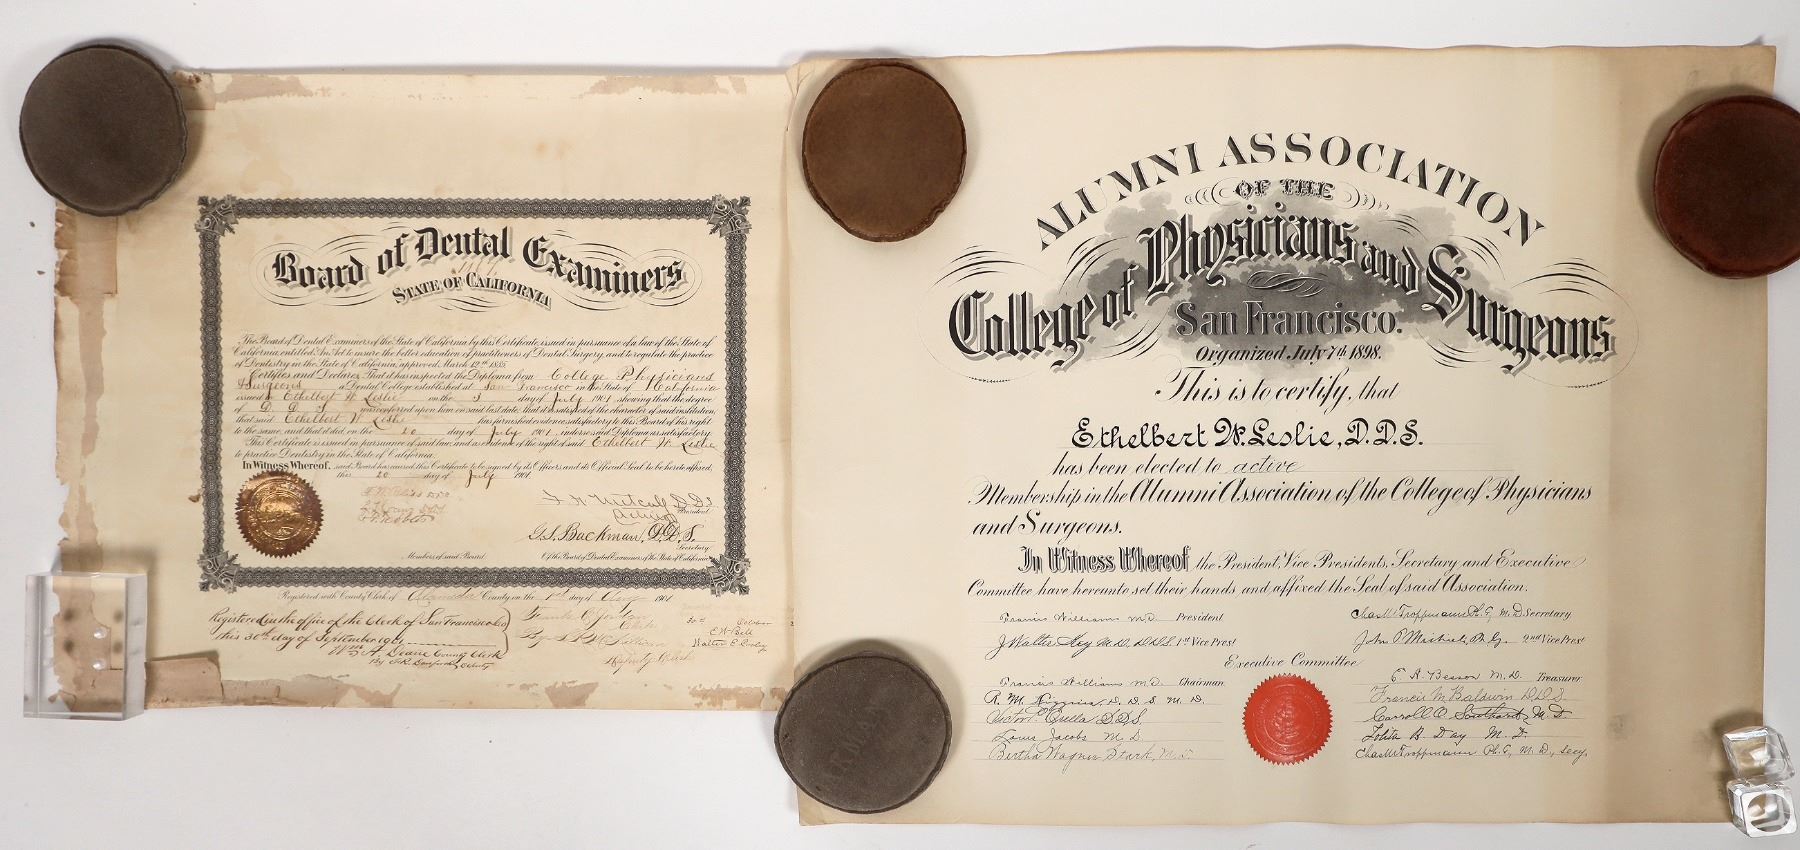 Board of Dental Examiners
STATE OF CALIFORNIA
The Board of Dental Examiners of the State of California by this Certificate, issued in pursuance of a law of the State of
California, entitled An Act to insure the better education of practitioners of Dental Surgery, and to regulate the practice
of Dentistry in the State of California, approved March 12th 1885.
Certifies and Declares, That it has inspected the Diploma from College Physicians
& Surgeons a Dental College established at San Francisco in the State of California
issued to Ethelbert W. Leslie on the 3 day of July 1901 showing that the degree
of D. D. S. was conferred upon him on said last date, that it is satisfied of the character of said institution,
that said Ethelbert W. Leslie has furnished evidence satisfactory to this Board of his right
to the same, and that it did on the 20 day of July 1901 indorse said Diploma as satisfactory.
This Certificate is issued in pursuance of said law, and is evidence of the right of said Ethelbert W. Leslie
to practice Dentistry in the State of California.
In Witness Whereof, said Board has caused this Certificate to be signed by its Officers, and its Official Seal to be hereto affixed,
this 20 day of July 1901.
President
G.S. Backman, D.D.S.
Secretary
Members of said Board Of the Board of Dental Examiners of the State of California
Registered with County Clerk of Alameda County on the 1st day of Aug 1901
Registered in the office of the Clerk of San Francisco Co
this 30th day of September 1901
Wm. A. Deane County Clerk
Deputy Clerk
ALUMNI ASSOCIATION
OF THE
College of Physicians and Surgeons
San Francisco.
Organized July 7th 1898.
This is to certify, that
Ethelbert W. Leslie, D.D.S.
has been elected to active
Membership in the Alumni Association of the College of Physicians
and Surgeons.
In Witness Whereof the President, Vice Presidents, Secretary and Executive
Committee have hereunto set their hands and affixed the Seal of said Association.
Francis Williams M.D. President
Chas W Troppmann Ph.G, M.D Secretary
J Walter Key M.D., D.D.S. 1st Vice Prest
John P Michiels Ph.G. 2nd Vice Prest
Executive Committee
Francis Williams M.D. Chairman
R. M. Higgins, D.D.S. M.D.
Louis Jacobs M D
Bertha Wagner Stark, M.D.
Treasurer
Francis M Baldwin D.D.S.
Carroll O. Southard, M D
Lolita B Day M. D.
Chas W Troppmann Ph.G, M.D, Secy